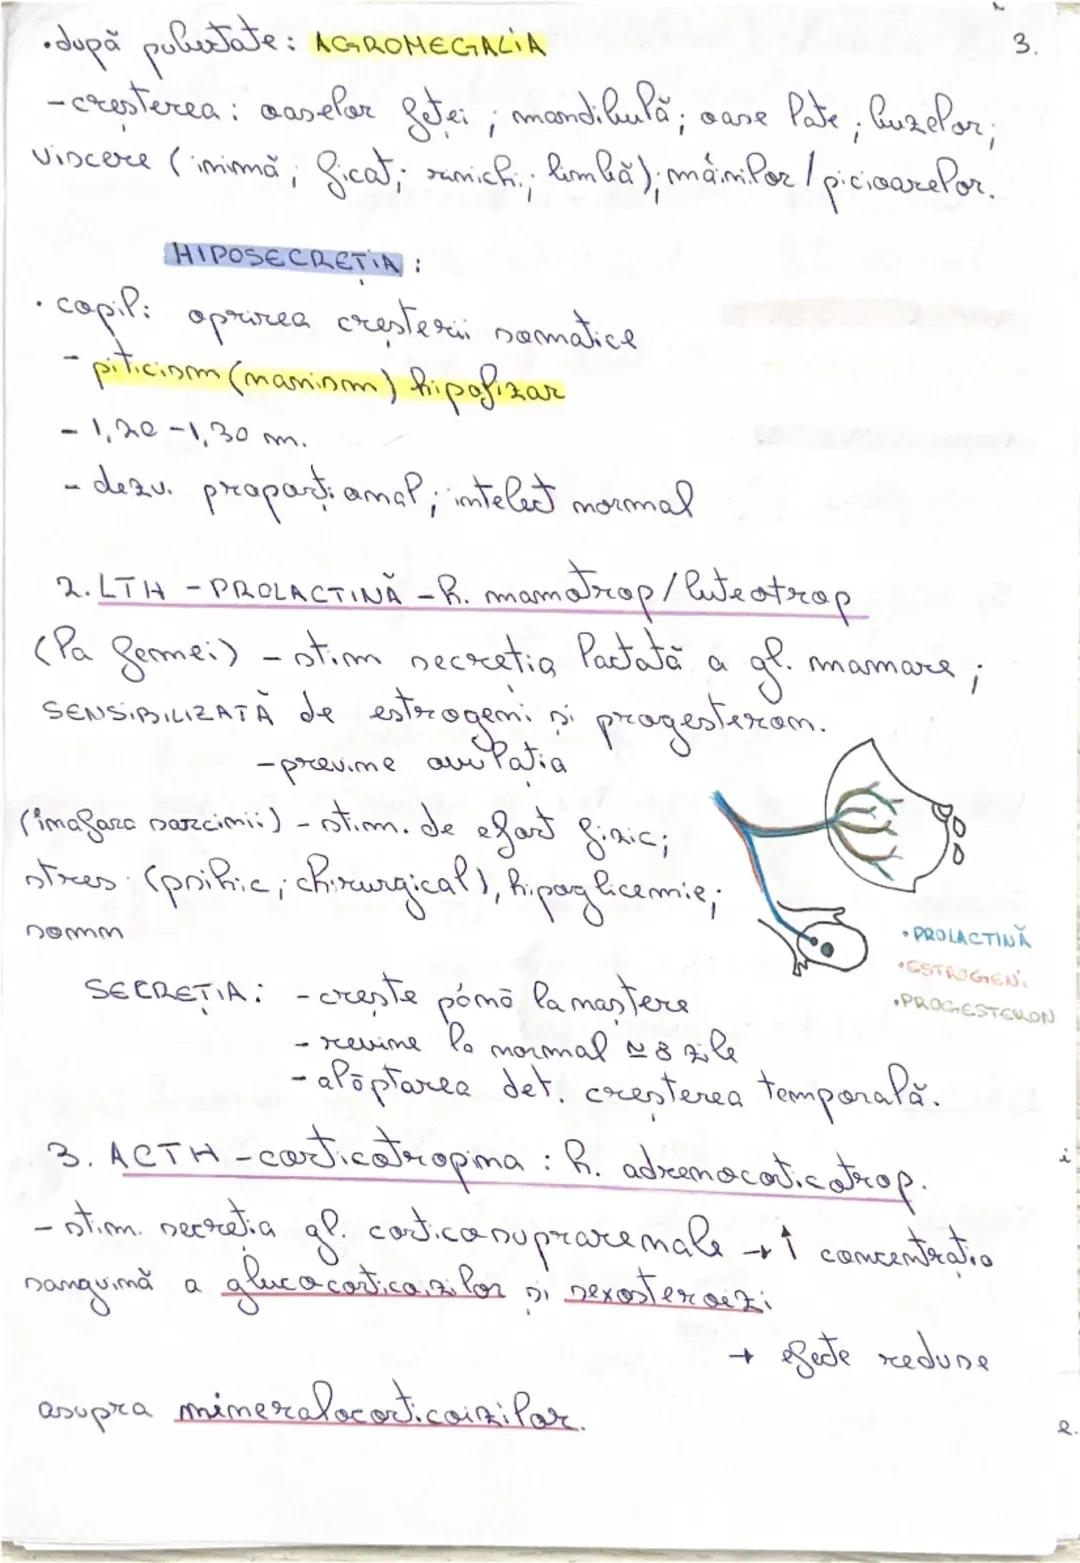 3.
• după pubertate: AGROMEGALIA
- creșterea: oaselor feței; mandibulă; oase late; buzelor;
viscere (inimă; ficat; rinichi; limbă); mâinilor / picioarelor.
HIPOSECREȚIA:
• copil: oprirea creșterii somatice
- piticism (nanism) hipofizar
- 1,20 - 1,30 m.
- dezv. proporțional; intelect normal
2. LTH - PROLACTINĂ - h. mamotrop / luteotrop
(la femei) - stim secreția lactată a gl. mamare;
SENSIBILIZATĂ de estrogeni și progesteron.
- previne ovulația
(înafara sarcinii) - stim. de efort fizic;
stres (psihic; chirurgical), hipoglicemie;
somn
• PROLACTINĂ
• ESTROGENi
• PROGESTERON
SECREȚIA: - crește până la naștere
- revine la normal ≃ 8 zile
- alăptarea det. creșterea temporală.
3. ACTH - corticotropina: h. adrenocorticotrop.
- stim. secreția gl. corticosuprarenale → ↑ concentrația
sanguină a glucocorticoizilor și sexosteroizi
→ efecte reduse
asupra mineralocorticoizilor.
i
e.